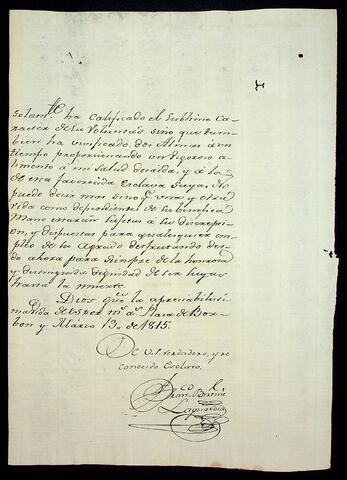 solam.te ha calificado el Sublime Ca-
racter de su Voluntad sino que tam-
bien ha vivificado dos Almas á un
tiempo proporcionando un vigoroso a-
limento á mi salud decaida, y á la
de esa favorecida Esclava Suya. No
puedo decir mas sino q.e una y otra
vida como dependientes de su benefica
Mano estarán sujetas á su discrecion
, y dispuestas para qualesquiera em-
pleo de su agrado disfrutando des-
de ahora para siempre de la honrosa
y distinguida dignidad de ser suyas
hasta la muerte.
Dios gue. la apreciabilisi-
ma vida de V.S. por m.s a.s Plaza de Bor-
bon y Marzo 13,, de 1815.
De V.S. verdadero, y re-
conocido Esclavo,
Fran.co
Laguardia